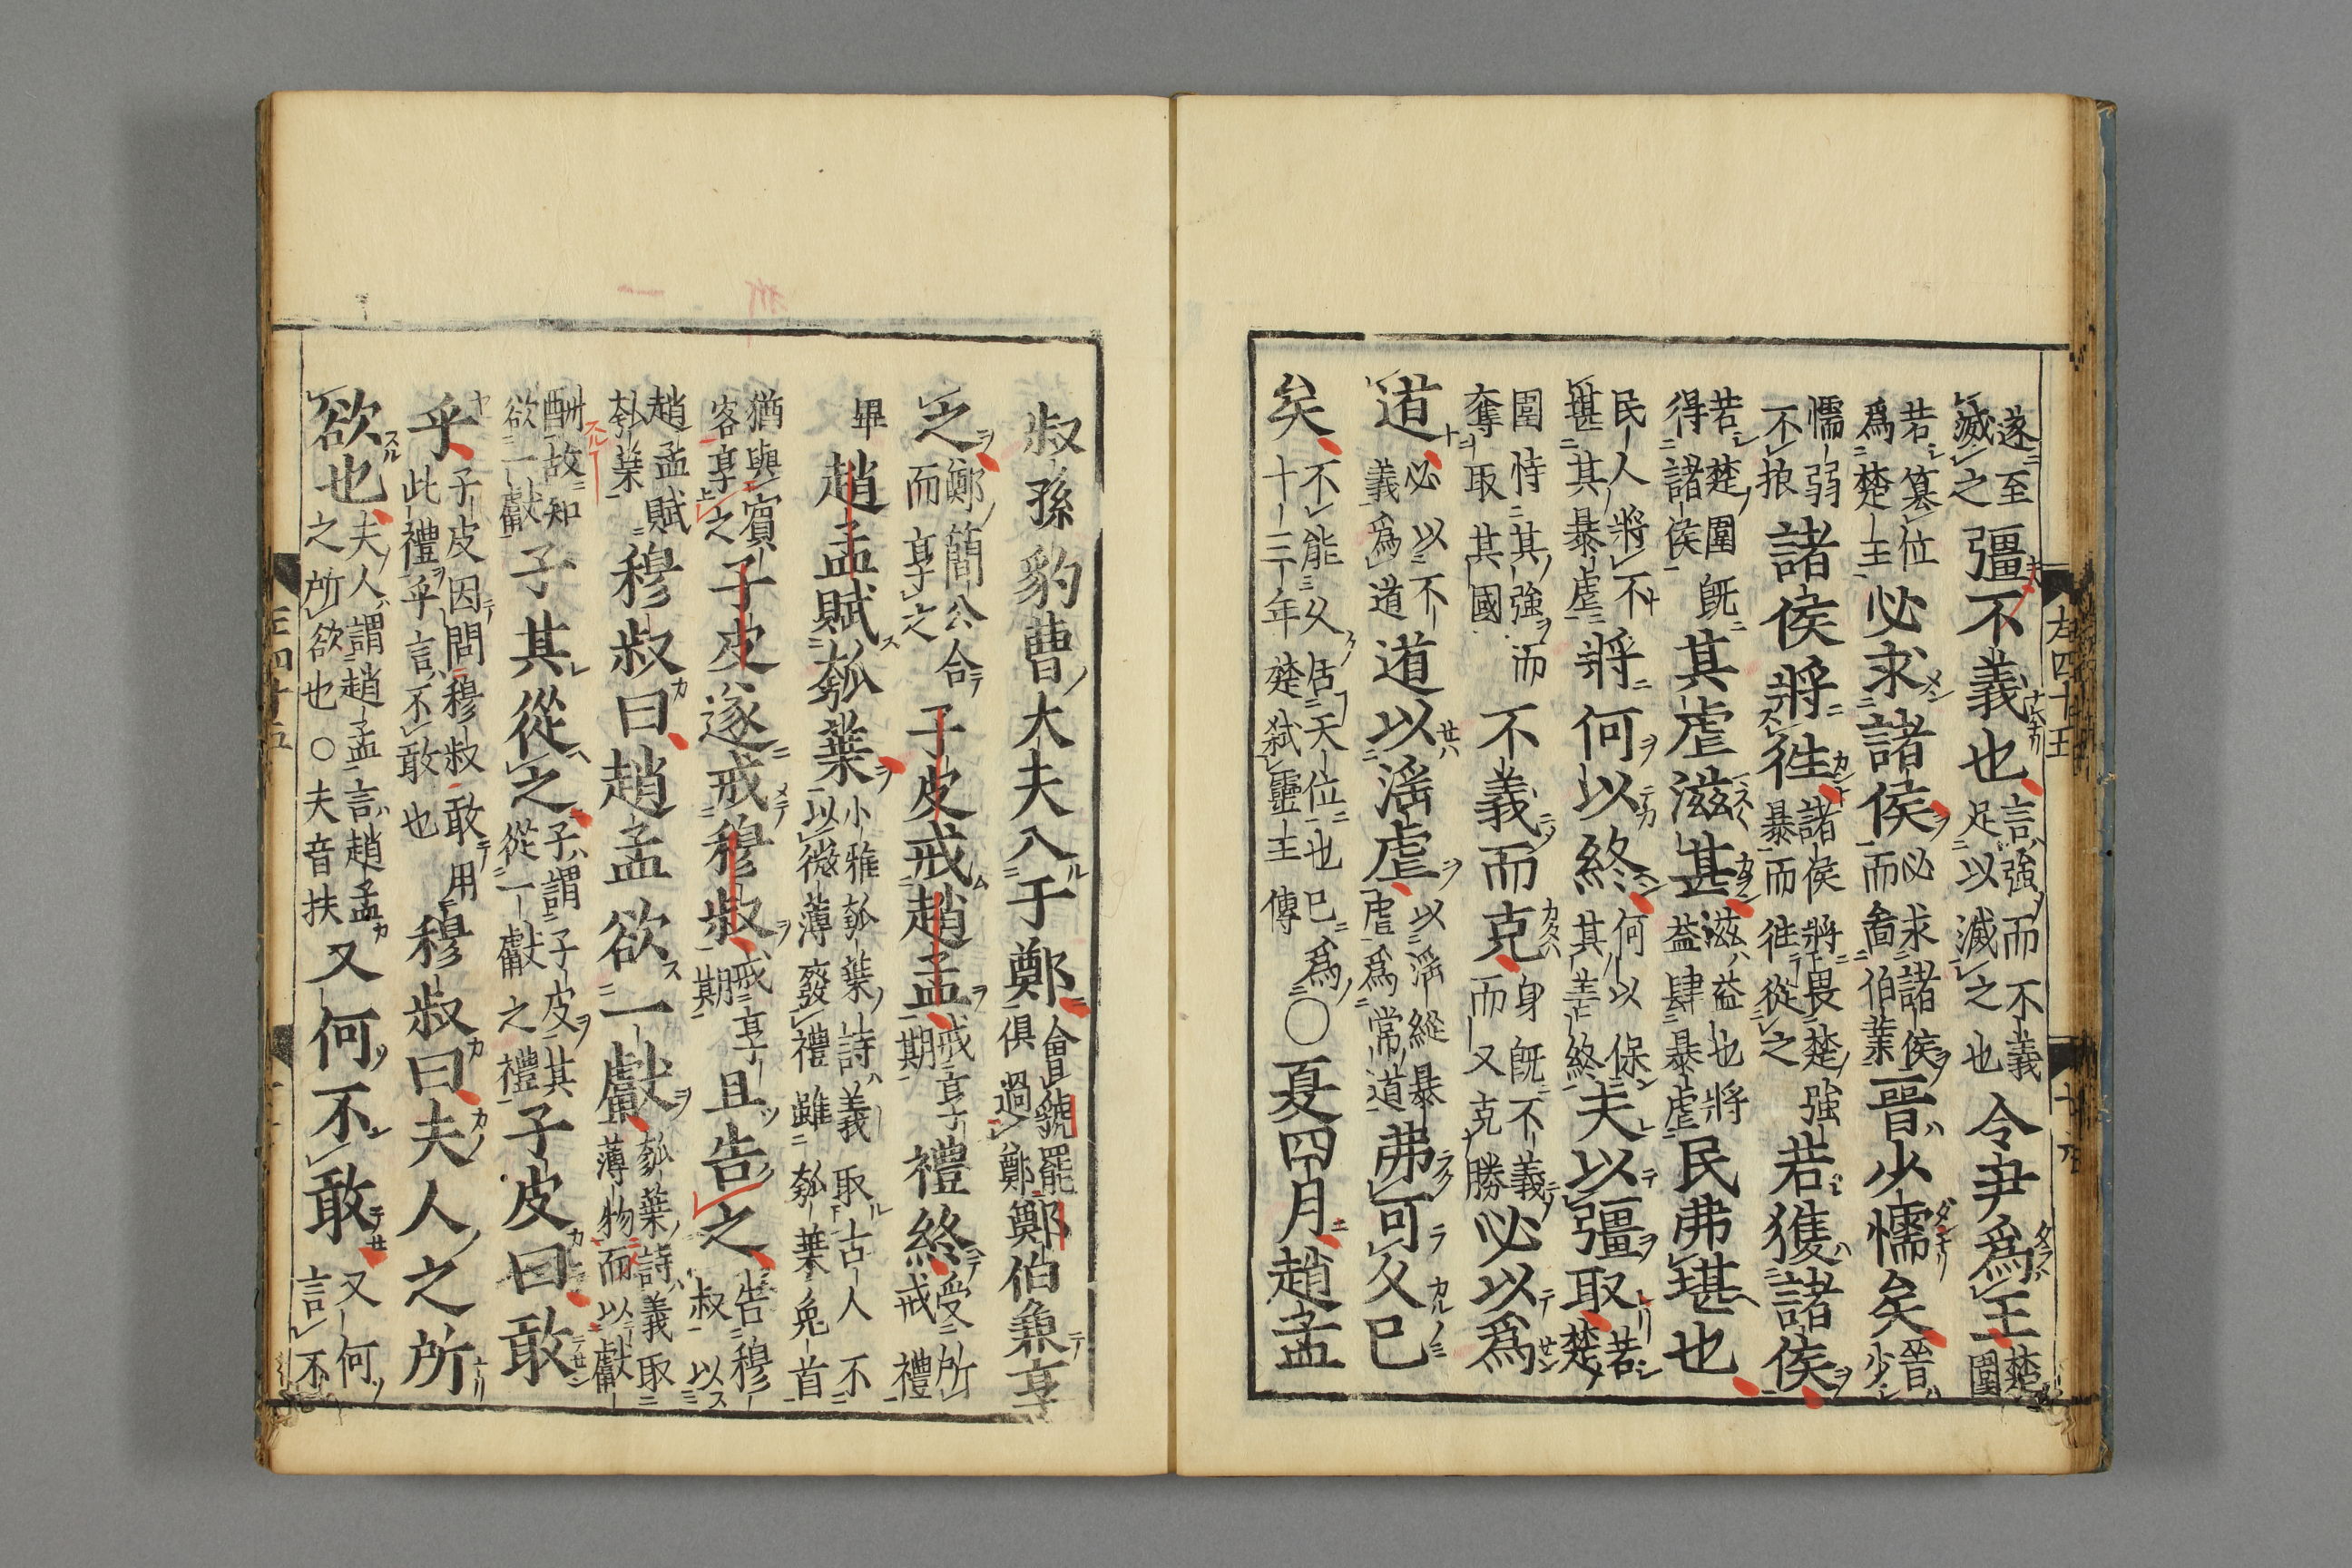 遂至滅之彊不義也言強而不義足以滅之也令尹爲王楚圍
若簒位爲楚王必求諸侯必求諸侯而啚伯業晉少懦矣晉少
懦弱不振諸侯將徃諸侯將畏楚強暴而徃從之若獲諸侯
若楚圍既得諸侯其虐滋甚滋益也將益肆暴虐民弗堪也
民人將不堪其暴虐將何以終何以保其善終夫以彊取若楚
圍恃其強而奪取其國不義而克身既不義而又克勝必以爲
道必以不義爲道道以滛虐以滛縱暴虐爲常道弗可久已
矣不能久居天位也已爲十三年楚弑靈王傳○夏四月趙孟
叔孫豹曹大夫入于鄭會虢罷俱過鄭鄭伯兼享
之鄭簡公合而享之子皮戒趙孟戒享期禮終受所戒禮
畢趙孟賦瓠葉小雅瓠葉詩義取古人不以微薄廢禮雖瓠葉兔首
猶與賓客享之子皮遂戒穆叔戒享期且告之告穆叔以
趙孟賦瓠葉穆叔曰趙孟欲一獻瓠葉詩義取薄物而以獻
酬故知欲一獻子其從之子謂子皮其從一獻之禮子皮曰敢
乎子皮因問穆叔敢用此禮乎言不敢也穆叔曰夫人之所
欲也夫人謂趙孟言趙孟之所欲也○夫音扶又何不敢又何言不